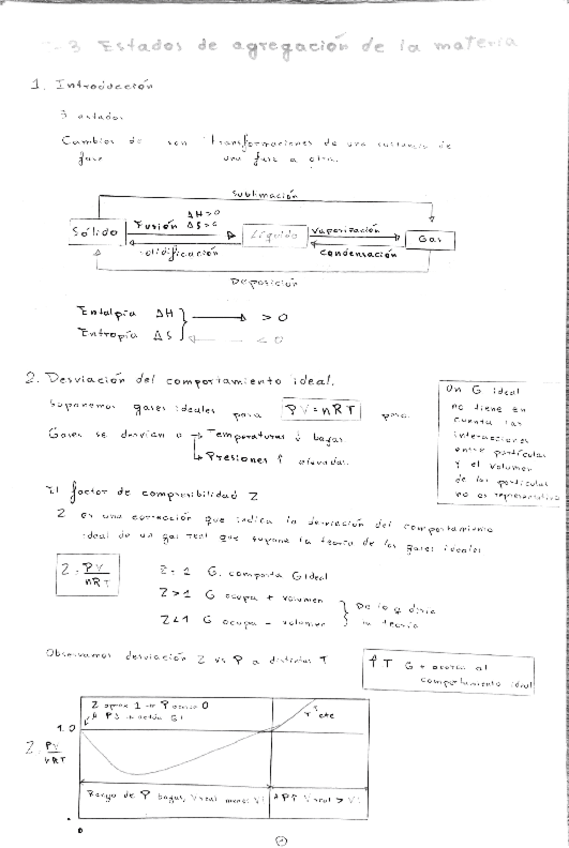 -3 Estados de agregación de la materia
1. Introducción
3 estados
Cambios de fase son transformaciones de una sustancia de una fase a otra.
Sublimación
Sólido Fusión ΔH>0 Líquido Vaporización Gas
olidificación Condensación
Deposición
Entalpía ΔH > 0
Entropía ΔS < 0
2. Desviación del comportamiento ideal.
Suponemos gases ideales para PV=nRT pero
Gases se desvían a → Temperaturas ↓ bajas
↳ Presiones ↑ elevadas
Un G ideal
no tiene en
cuenta las
interacciones
entre partículas
y el volumen
de las partículas
no es representativo
El factor de compresibilidad Z
Z es una corrección que indica la desviación del comportamiento
ideal de un gas real que supone la teoría de los gases ideales
Z = PV/nRT
Z = 1 G. comporta G Ideal
Z > 1 G ocupa + volumen
Z < 1 G ocupa - volumen
De lo q diría la teoría
Observamos desviación Z vs P a distintas T
↑ T G + acerca al
comportamiento ideal
Z aprox 1 → P acerca 0
1.0
Z = PV/nRT
T cte
Rango de P bajas, V real menos Vi
P↑ V real > Vi
0